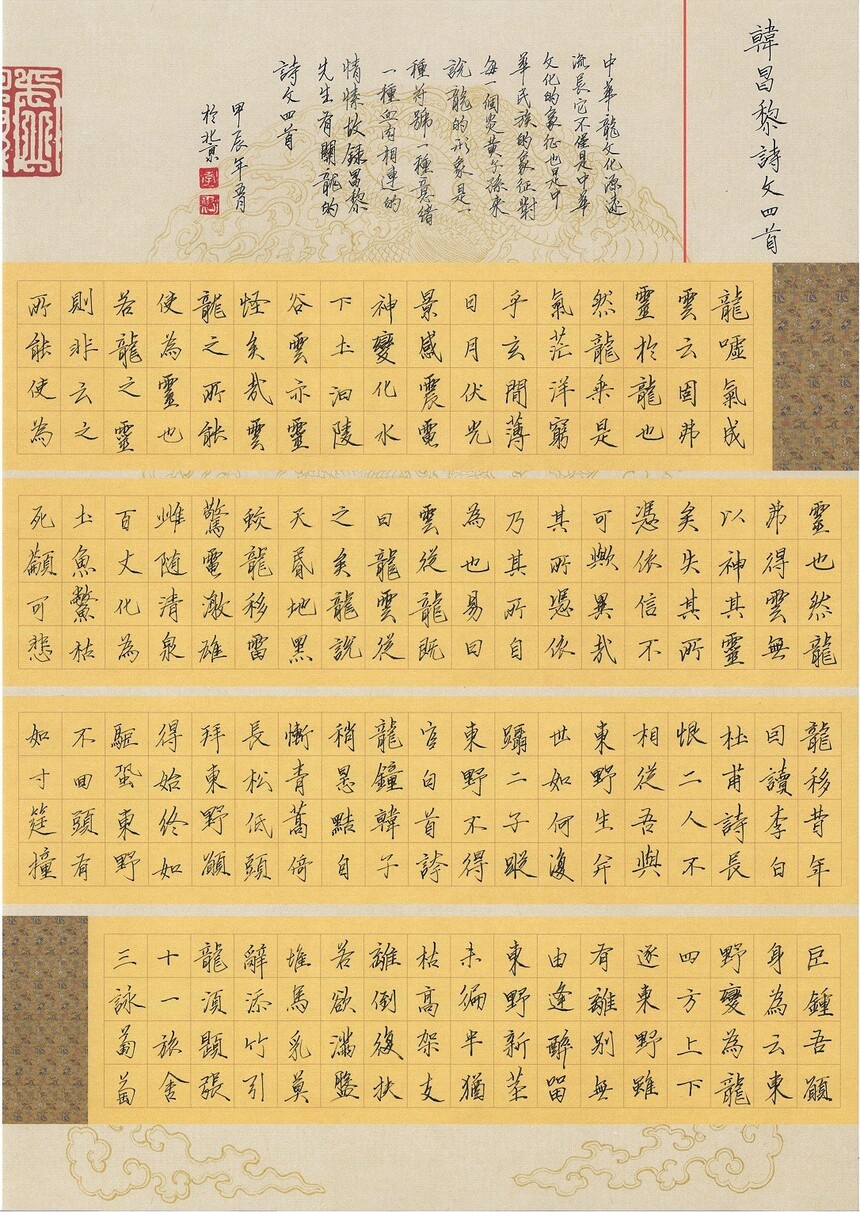 韓昌黎詩文四首
中華龍文化源遠
流長它不僅是中華
文化的象征也是中
華民族的象征對
每一個炎黃子孫來
說龍的形象是一
種符號一種意緒
一種血肉相連的
情愫故録昌黎
先生有關龍的
詩文四首
甲辰年月
於北京
龍噓氣成
雲云固弗
靈於龍也
然龍乘是
氣茫洋窮
乎玄間薄
日月伏光
景感震電
神變化水
下土汩陵
谷雲亦靈
怪矣哉雲
龍之所能
使為靈也
若龍之靈
則非云之
所能使為
靈也然龍
弗得雲無
以神其靈
矣失其所
憑依信不
可歟異哉
其所憑依
乃其所自
為也易曰
雲從龍既
曰龍雲從
之矣龍說
天昏地黑
蛟龍移雷
驚電激雄
雌隨清泉
百丈化為
土魚鱉枯
死籲可悲
龍移昔年
曰讀李白
杜甫詩長
恨二人不
相從吾與
東野生并
世如何復
躡二子蹤
東野不得
官白首誇
龍鐘韓子
稍黠自
慚青蒿倚
長松低頭
拜東野願
得始終如
駏蛩東野
不回頭有
如寸筳撞
巨鍾吾願
身為云東
野變為龍
四方上下
逐東野雖
有離別無
由逢醉留
東野新莖
未徧半猶
枯高架支
離倒復扶
若欲滿盤
堆馬乳莫
辭添竹引
龍須顕張
十一族舍
三詠葡萄